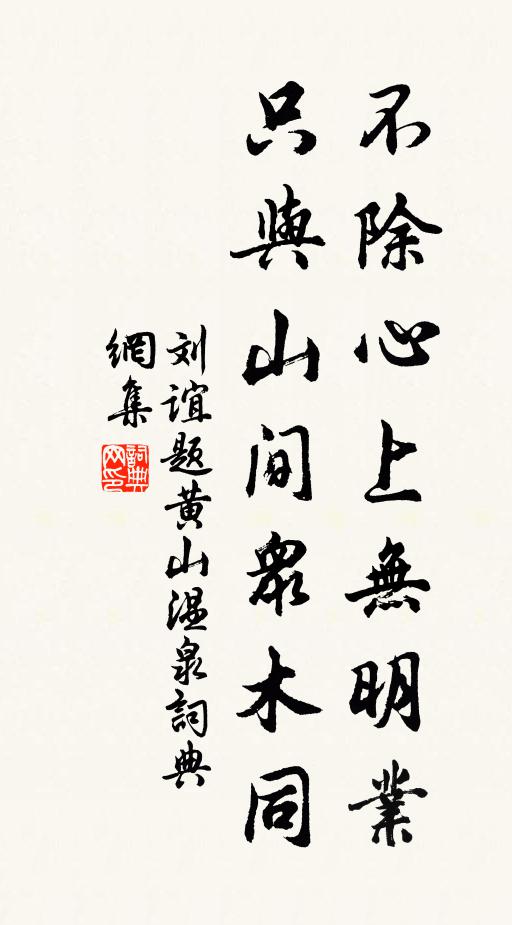 不除心上無明業
只與山間衆木同
刘誼题黄山温泉詞典
網集
詞典
网印